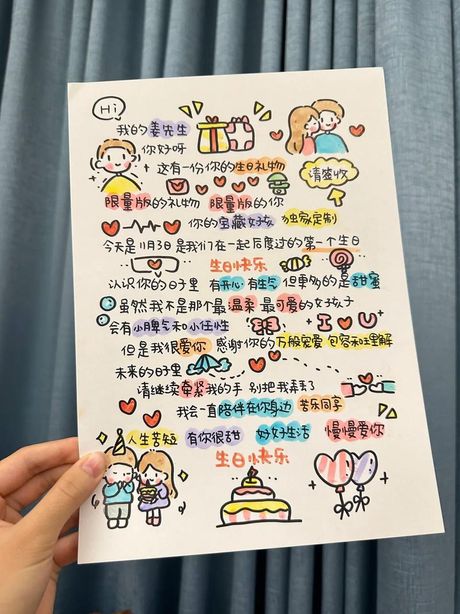 Hi
我的姜先生
你好呀
这有一份你的生日礼物
请签收
限量版的礼物 限量版的你
你的宝藏女孩 独家定制
今天是11月3日是我们在一起后度过的第一个生日
生日快乐
认识你的日子里 有开心 有生气 但更多的是甜蜜
虽然我不是那个最温柔 最可爱的女孩子
会有小脾气和小任性
I U
但是我很爱你 感谢你的万般宠爱 包容和理解
未来的日子里
请继续牵紧我的手 别把我弄丢了
我会一直陪伴在你身边 苦乐同享
人生苦短 有你很甜 好好生活 慢慢爱你
生日快乐